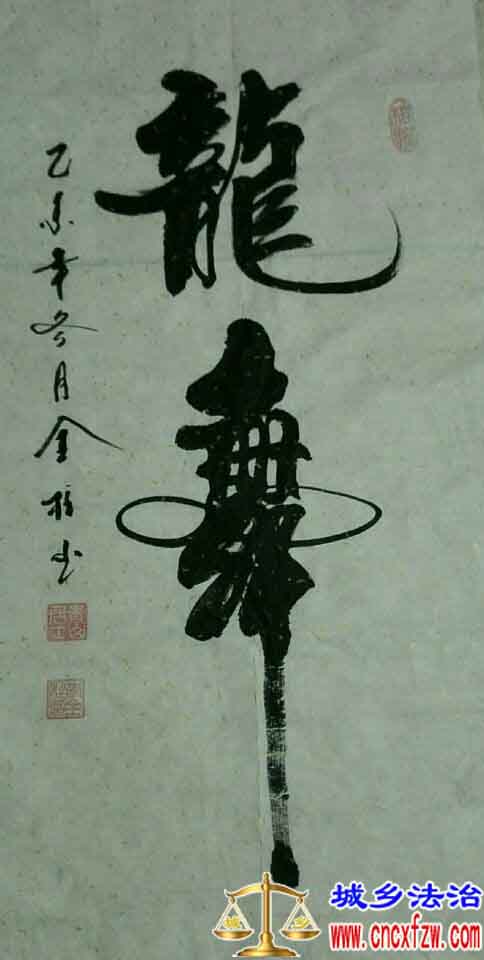 龍舞
乙未年冬月金柱书
城乡法治
www.cncxfzw.com